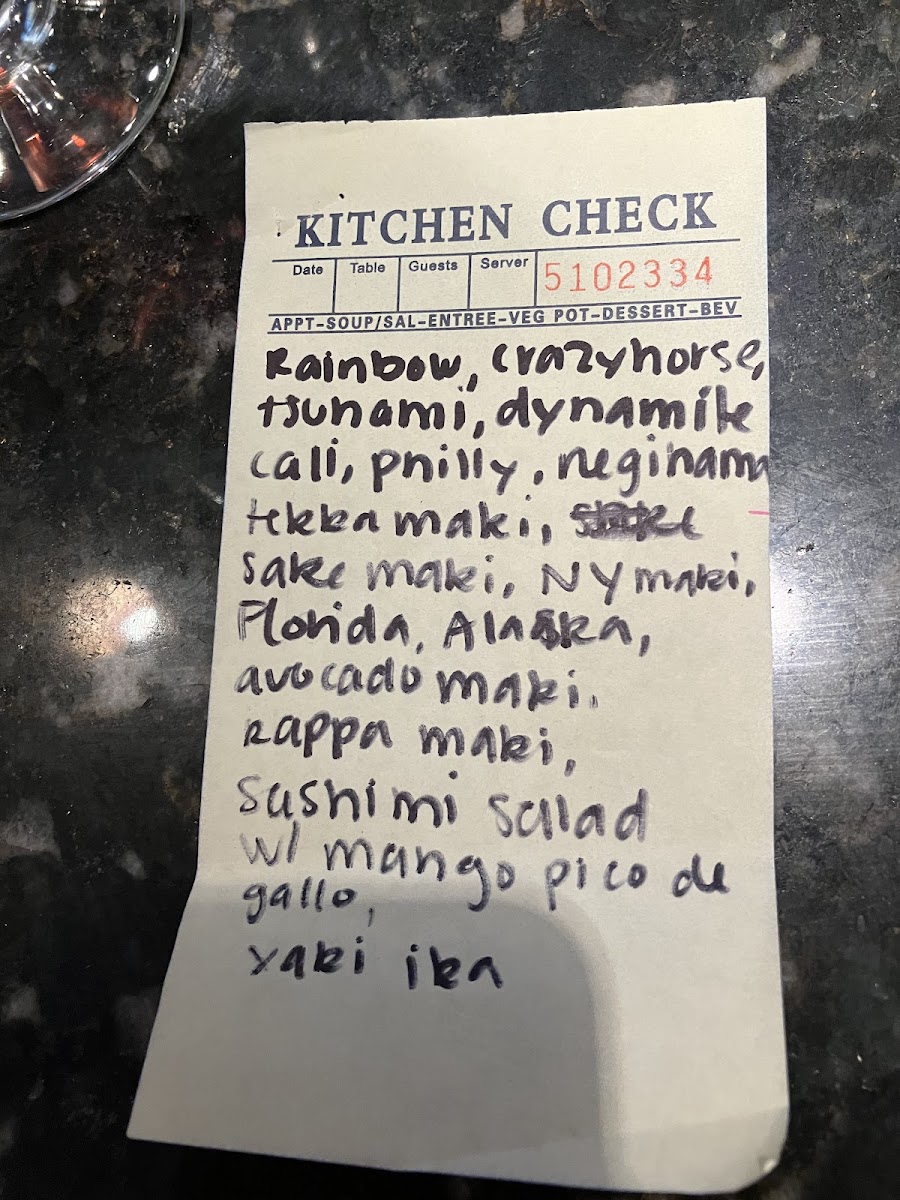 KITCHEN CHECK
Date Table Guests Server 5102334
APPT-SOUP/SAL-ENTREE-VEG POT-DESSERT-BEV
Rainbow, crazyhorse,
tsunami, dynamite
cali, philly, neginama
tekka maki,
sake maki, NY maki,
Florida, Alaska,
avocado maki,
kappa maki,
sushimi salad
w/ mango pico de
gallo,
yaki ika